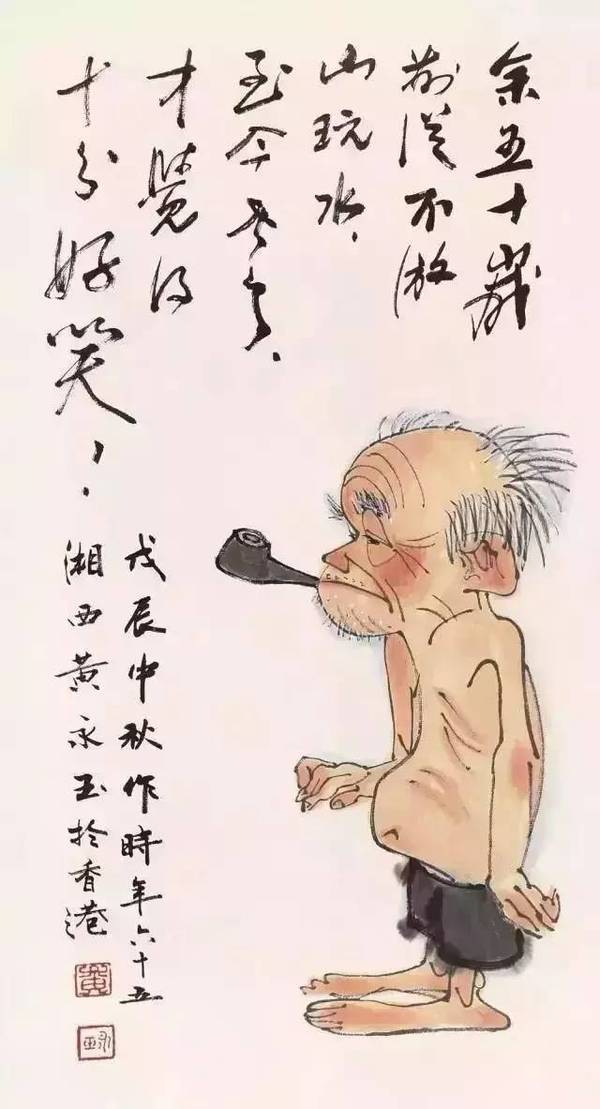 余五十歲
前從不游
山玩水，
至今老了，
才覺得
十分好笑！
戊辰中秋作時年六十五
湘西黃永玉於香港
黃